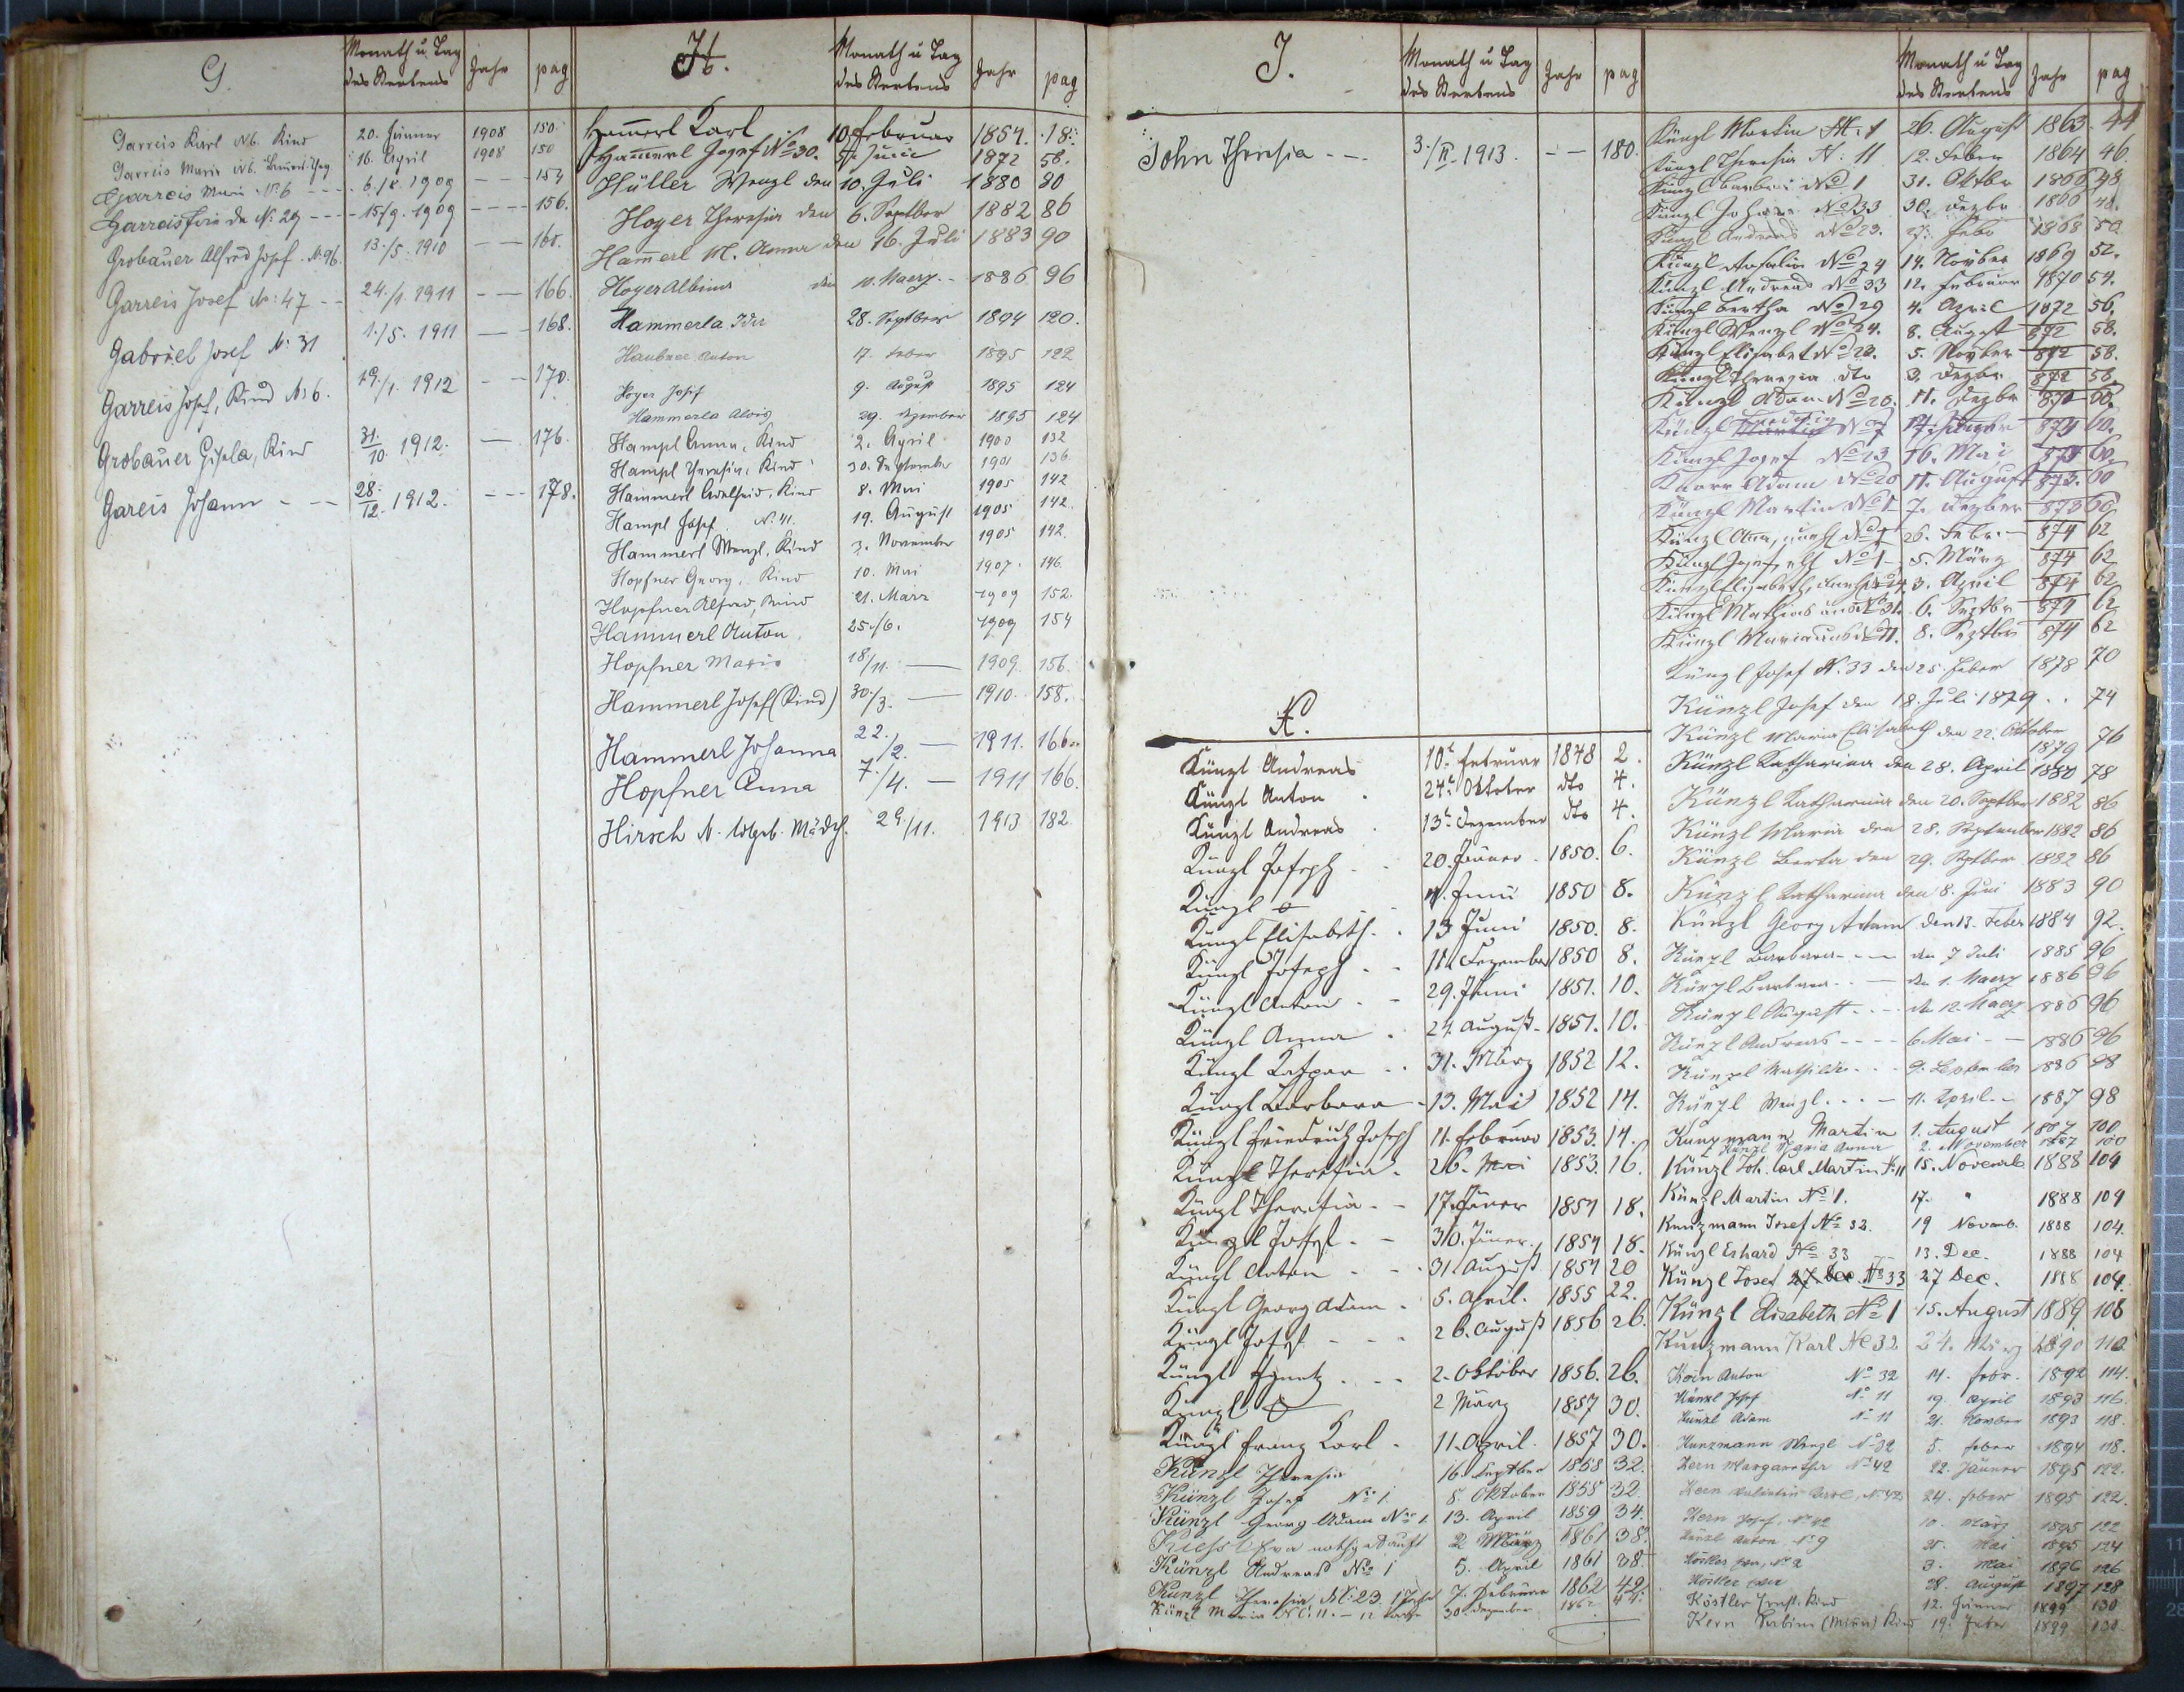 G.
Monath u. Tag
des Sterbens
Jahr
pag
Garreis Karl N6. Kind 20. Jänner 1908 150.
Garreis Maria N6. 16. April 1908 150
Garreis Marie No 6 6./5. 1909 154
Garreis N: 29 15/9. 1909 156.
Grobauer Alfred Josef. N: 96. 13./5. 1910 160.
Garreis Josef No: 47 24./1. 1911 166.
Gabriel Josef N: 31 1./5. 1911 168.
Garreis Josef, Kind N: 6. 19./1. 1912 170.
Grobauer Gisela, Kind 31/10. 1912. 176.
Gareis Johann 28./12. 1912. 178.
H.
Monath u Tag
des Sterbens
Jahr
pag
Hamerl Karl 10. Februar 1854. 18.
Hamerl Josef No 30. 5. Juni 1872 58.
Hüller Wenzl den 10. Juli 1880 80
Hoyer Theresia den 6. Septber 1882 86
Hamerl M. Anna den 16. Juli 1883 90
Hoyer Albina den 10. Maerz 1886 96
Hammerla Ida 28. Septber 1894 120.
Haubner Anton 17. Feber 1895 122
Hoyer Josef 9. August 1895 124
Hammerla Alois 29. Dezember 1895 124
Hampl Anna, Kind 2. April 1900 132
Hampl Theresia, Kind 30. September 1901 136
Hammerl Adelheid, Kind 8. Mai 1905 142
Hampl Josef N. 41. 19. August 1905 142.
Hammerl Wenzl, Kind 3. November 1905 142.
Hopfner Georg, Kind 10. Mai 1907. 146.
Hopfner Alfred, Kind 21. März 1909 152.
Hammerl Anton 25./6. 1909 154
Hopfner Maria 18/11. 1909. 156.
Hammerl Josef (Kind) 30./3. 1910. 158.
Hammerl Johanna 22./2. 1911. 166.
Hopfner Anna 7./4. 1911 166.
Hirsch N. totgeb. Mädch. 29./11. 1913 182.
J.
Monath u Tag
des Sterbens
Jahr
pag
John Theresia 3./II. 1913. 180.
K.
Künzl Andreas 10t Februar 1848 2.
Künzl Anton 24t Oktober dto 4.
Künzl Andreas 13t Dezember dto 4.
Künzl Joseph 20. Jänner 1850. 6.
Künzl Juni 1850 8.
Künzl Elisabeth 13 Juni 1850. 8.
Künzl Joseph 11. Dezember 1850 8.
Künzl Anton 29. Juni 1851. 10.
Künzl Anna 24. August 1851. 10.
Künzl Kaspar 31. März 1852 12.
Künzl Barbara 13. Mai 1852 14.
Künzl Friedrich Joseph 11. Februar 1853. 14.
Künzl Theresia 26. Mai 1853. 16.
Künzl Theresia 17. Jäner 1854 18.
Künzl Josef 30. Jäner 1854 18.
Künzl Anton 31. August 1854 20
Künzl Georg Adam 5. April. 1855 22.
Künzl Josef 26. August 1856 26.
Künzl Ignatz 2. Oktober 1856. 26.
Künzl 2 März 1857 30.
Künzl Franz Karl 11. April. 1857 30.
Künzl Theresia 16. Septber 1858 32.
Künzl Josef No 1. 8. Oktober 1858 32
Künzl Georg Adam No 1 13. April 1859 34.
Eva nothgetauft 2 März 1861 38.
Künzl Andreas No 1 5. April 1861 38.
Künzl Theresia N: 23. 7. Februar 1862 42.
Künzl Maria N: 11. 30. Dezember 1862 44.
Monath u Tag
des Sterbens
Jahr
pag
Künzl Martin N. 1 26. August 1863. 44
Künzl Theresia N: 11 12. Feber 1864 46.
Künzl Barbara No 1 31. Oktbr 1866 48
Künzl Johann No 33 30. Dezbr 1866 48.
Künzl Andreas No 23. Febr 1868 50.
Künzl No 24 14. Novber 1869 52.
Künzl Andreas No 33 12. Februar 1870 54.
Künzl Bertha No 29 4. April 1872 56.
Künzl Wenzl No 24. 8. August 872 58.
Künzl Elisabet No 23. 5. Novber 872 58.
Künzl Theresia dto 3. Dezbr 872 58.
Künzl Adam No 20. 11. Dezbr 60.
Künzl No 7 60.
Künzl Josef No 13 16. Mai 60.
Knorr Adam No 20 11. August 873. 60
Künzl Martin No 1 7. Dezber 873 60
Künzl Anna 26. Febr. 874 62
Künzl Josef No 1 5. März 874 62
Künzl Elisabeth 3. April 874 62
Künzl Mathias No 31. 6. Septbr 874 62
Künzl Maria No 11. 8. Septbr 874 62
Künzl Josef N. 33 den 25. Feber 1878 70
Künzl Josef den 18. Juli 1879 74
Künzl Maria Elisabeth den 22. Oktober 1879 76
Künzl Katharina den 28. April 1880 78
Künzl Katharina den 20. Septber 1882 86
Künzl Maria den 28. September 1882 86
Künzl Berta den 29. Septber 1882 86
Künzl Katharina den 8. Juni 1883 90
Künzl Georg Adam den 13. Feber 1884 92.
Künzl Barbara den 7 Juli 1885 96
Künzl Barbara den 1. Maerz 1886 96
Künzl August den 12. Maerz 1886 96
Künzl Andreas 6. Mai 1886 96
Künzl Mathilde 9. September 1886 98
Künzl Wenzl 11. April 1887 98
Kunzmann Martin 1. August 1887 100
Künzl Maria Anna 2. November 1887 100
Künzl Joh. Carl Martin N: 11 15. Novemb 1888 104
Künzl Martin No 1. 17. " 1888 104
Kunzmann Josef No 32. 19 Novemb. 1888 104.
Künzl Erhard No 33 13. Dec. 1888 104
Künzl Josef 27. Dec. No 33 27 Dec. 1888 104.
Künzl Elisabeth No 1 15. August 1889 108
Kunzmann Karl No 32 24. März 1890 110
Anton No 32 14. Febr. 1892 114.
Künzl Josef No 11 19. April 1893 116.
Künzl Adam No 11 21. Novber 1893 118.
Kunzmann Wenzl No 32 5. Feber 1894 118.
Kern Margaretha No 42 22. Jänner 1895 122.
Kern Valentin Karl, No 42 24. Feber 1895 122.
Kern Josef, No 42 10. März 1895 122
Künzl Anton, No 9 25. Mai 1895 124
Köstler No 2 3. Mai 1896 126
Köstler 28. August 1897 128
Köstler Ernst, Kind 12. Jänner 1899 130
Kern Sabine Kind 19. Feber 1899 130